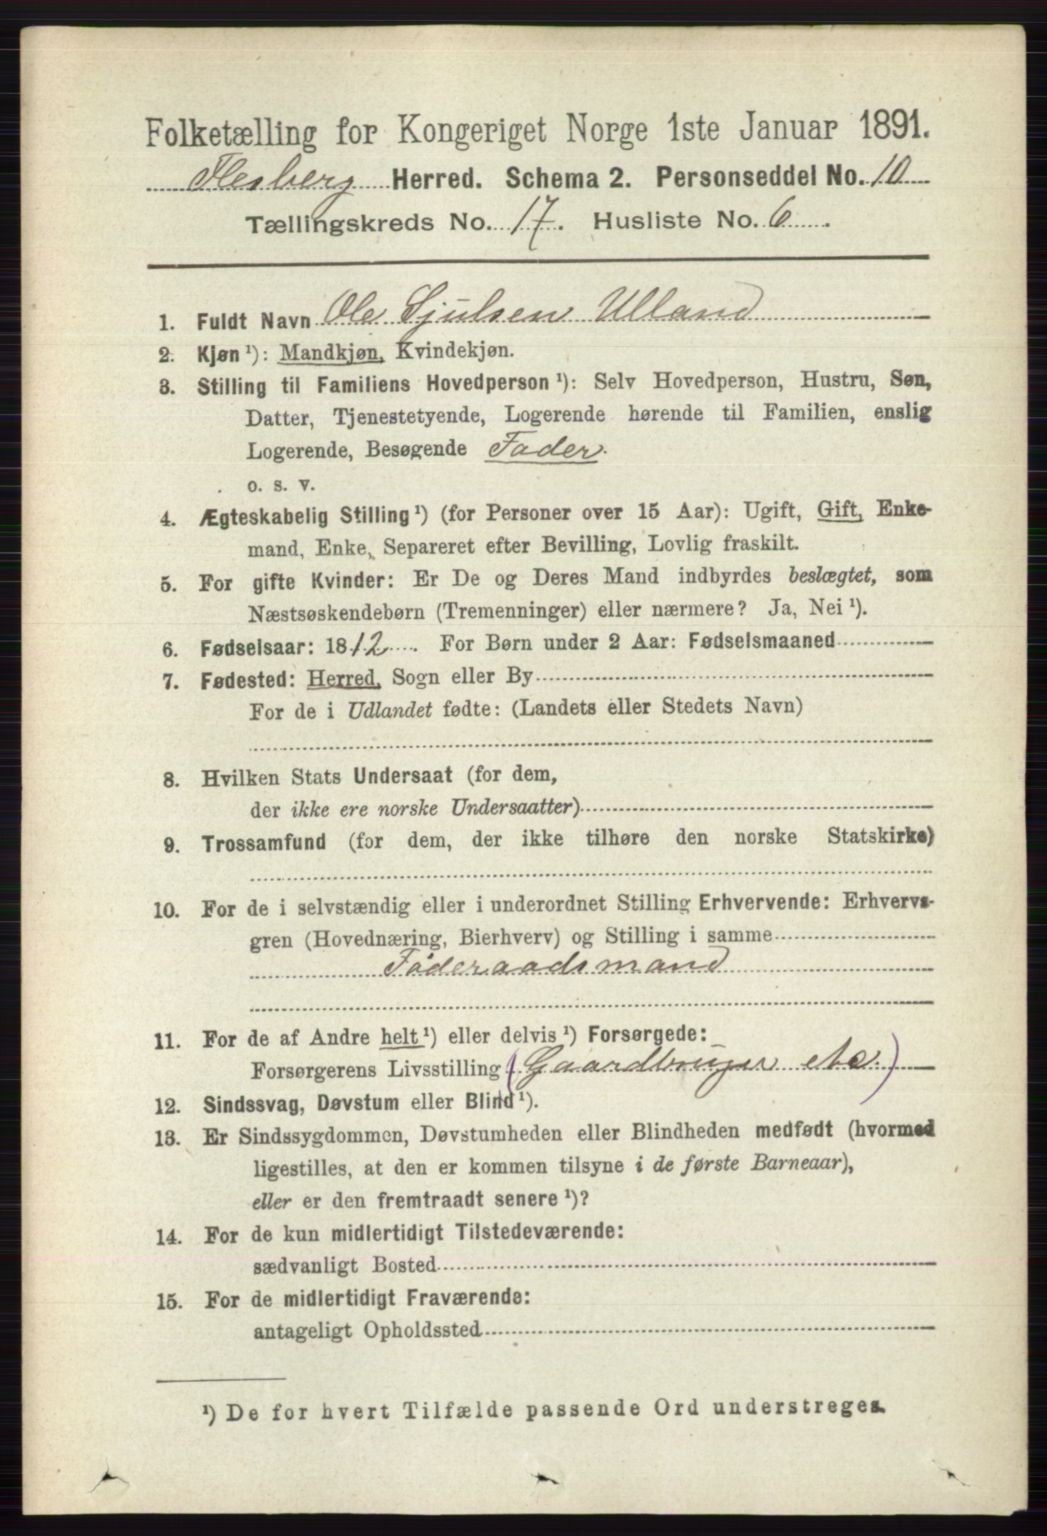 Folketælling for Kongeriget Norge 1ste Januar 1891.
Flesberg Herred. Schema 2. Personseddel No. 10
Tællingskreds No. 17. Husliste No. 6.
1. Fuldt Navn Ole Sjulsen Ulland
2. Kjøn ¹): Mandkjøn, Kvindekjøn.
3. Stilling til Familiens Hovedperson ¹): Selv Hovedperson, Hustru, Søn,
Datter, Tjenestetyende, Logerende hørende til Familien, enslig
Logerende, Besøgende Fader.
o. s. v.
4. Ægteskabelig Stilling ¹) (for Personer over 15 Aar): Ugift, Gift, Enke-
mand, Enke, Separeret efter Bevilling, Lovlig fraskilt.
5. For gifte Kvinder: Er De og Deres Mand indbyrdes beslægtet, som
Næstsøskendebørn (Tremenninger) eller nærmere? Ja, Nei ¹).
6. Fødselsaar: 1812. For Børn under 2 Aar: Fødselsmaaned
7. Fødested: Herred, Sogn eller By
For de i Udlandet fødte: (Landets eller Stedets Navn)
8. Hvilken Stats Undersaat (for dem,
der ikke ere norske Undersaatter)
9. Trossamfund (for dem, der ikke tilhøre den norske Statskirke)
10. For de i selvstændig eller i underordnet Stilling Erhvervende: Erhvervs-
gren (Hovednæring, Bierhverv) og Stilling i samme
Føderaadsmand
11. For de af Andre helt ¹) eller delvis ¹) Forsørgede:
Forsørgerens Livsstilling (Gaardbruger etc.)
12. Sindssvag, Døvstum eller Blind ¹).
13. Er Sindssygdommen, Døvstumheden eller Blindheden medfødt (hvormed
ligestilles, at den er kommen tilsyne i de første Barneaar),
eller er den fremtraadt senere ¹)?
14. For de kun midlertidigt Tilstedeværende:
sædvanligt Bosted
15. For de midlertidigt Fraværende:
antageligt Opholdssted
¹) De for hvert Tilfælde passende Ord understreges.